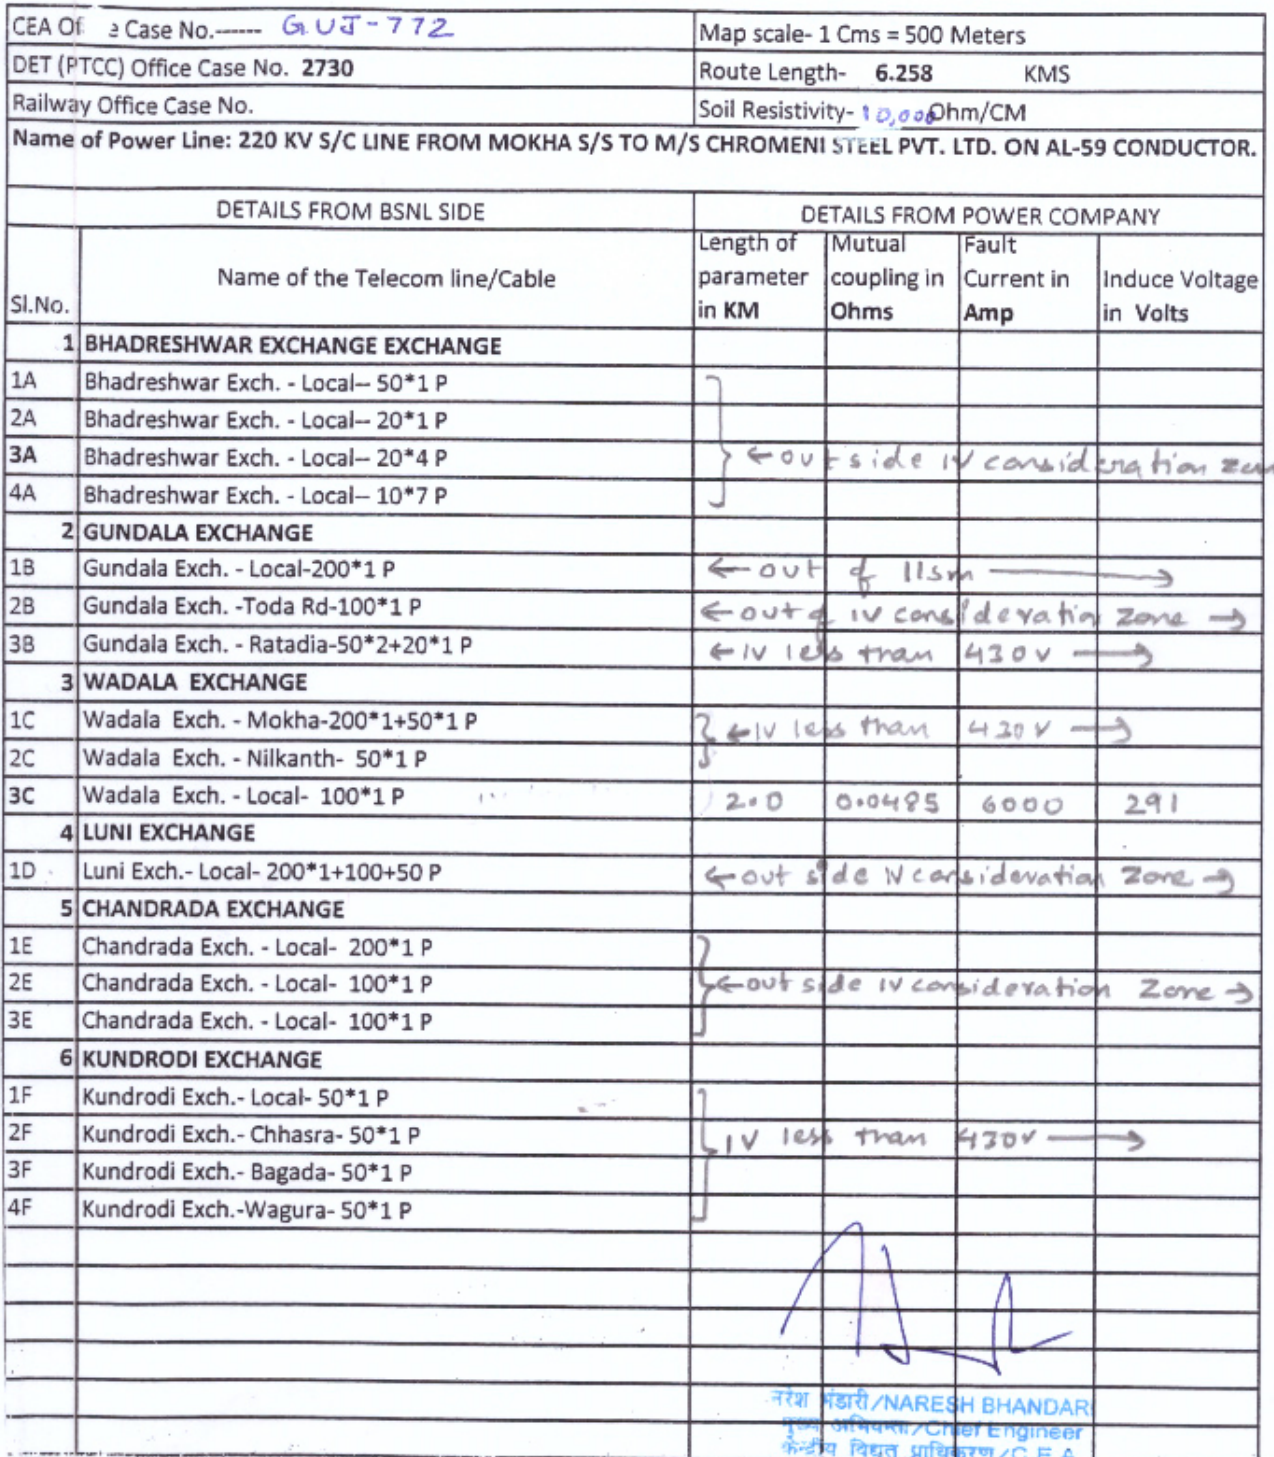 CEA Of e Case No.------ GUJ-772
Map scale- 1 Cms = 500 Meters
DET (PTCC) Office Case No. 2730
Route Length- 6.258 KMS
Railway Office Case No.
Soil Resistivity- 10,000 Ohm/CM
Name of Power Line: 220 KV S/C LINE FROM MOKHA S/S TO M/S CHROMENI STEEL PVT. LTD. ON AL-59 CONDUCTOR.
DETAILS FROM BSNL SIDE DETAILS FROM POWER COMPANY
Sl.No. Name of the Telecom line/Cable Length of parameter in KM Mutual coupling in Ohms Fault Current in Amp Induce Voltage in Volts
1 BHADRESHWAR EXCHANGE EXCHANGE
1A Bhadreshwar Exch. - Local-- 50*1 P
2A Bhadreshwar Exch. - Local-- 20*1 P
3A Bhadreshwar Exch. - Local-- 20*4 P ← out side IV consideration zon
4A Bhadreshwar Exch. - Local-- 10*7 P
2 GUNDALA EXCHANGE
1B Gundala Exch. - Local-200*1 P ← out of 11sm →
2B Gundala Exch. -Toda Rd-100*1 P ← out of IV consideration Zone →
3B Gundala Exch. - Ratadia-50*2+20*1 P ← IV less than 430V →
3 WADALA EXCHANGE
1C Wadala Exch. - Mokha-200*1+50*1 P ← IV less than 430V →
2C Wadala Exch. - Nilkanth- 50*1 P
3C Wadala Exch. - Local- 100*1 P 2.0 0.0485 6000 291
4 LUNI EXCHANGE
1D Luni Exch.- Local- 200*1+100+50 P ← out side IV consideration Zone →
5 CHANDRADA EXCHANGE
1E Chandrada Exch. - Local- 200*1 P
2E Chandrada Exch. - Local- 100*1 P ← out side IV consideration Zone →
3E Chandrada Exch. - Local- 100*1 P
6 KUNDRODI EXCHANGE
1F Kundrodi Exch.- Local- 50*1 P
2F Kundrodi Exch.- Chhasra- 50*1 P IV less than 430V →
3F Kundrodi Exch.- Bagada- 50*1 P
4F Kundrodi Exch.-Wagura- 50*1 P
नरेश भंडारी/NARESH BHANDARI
मुख्य अभियन्ता/Chief Engineer
केन्द्रीय विद्युत प्राधिकरण/C.E.A.